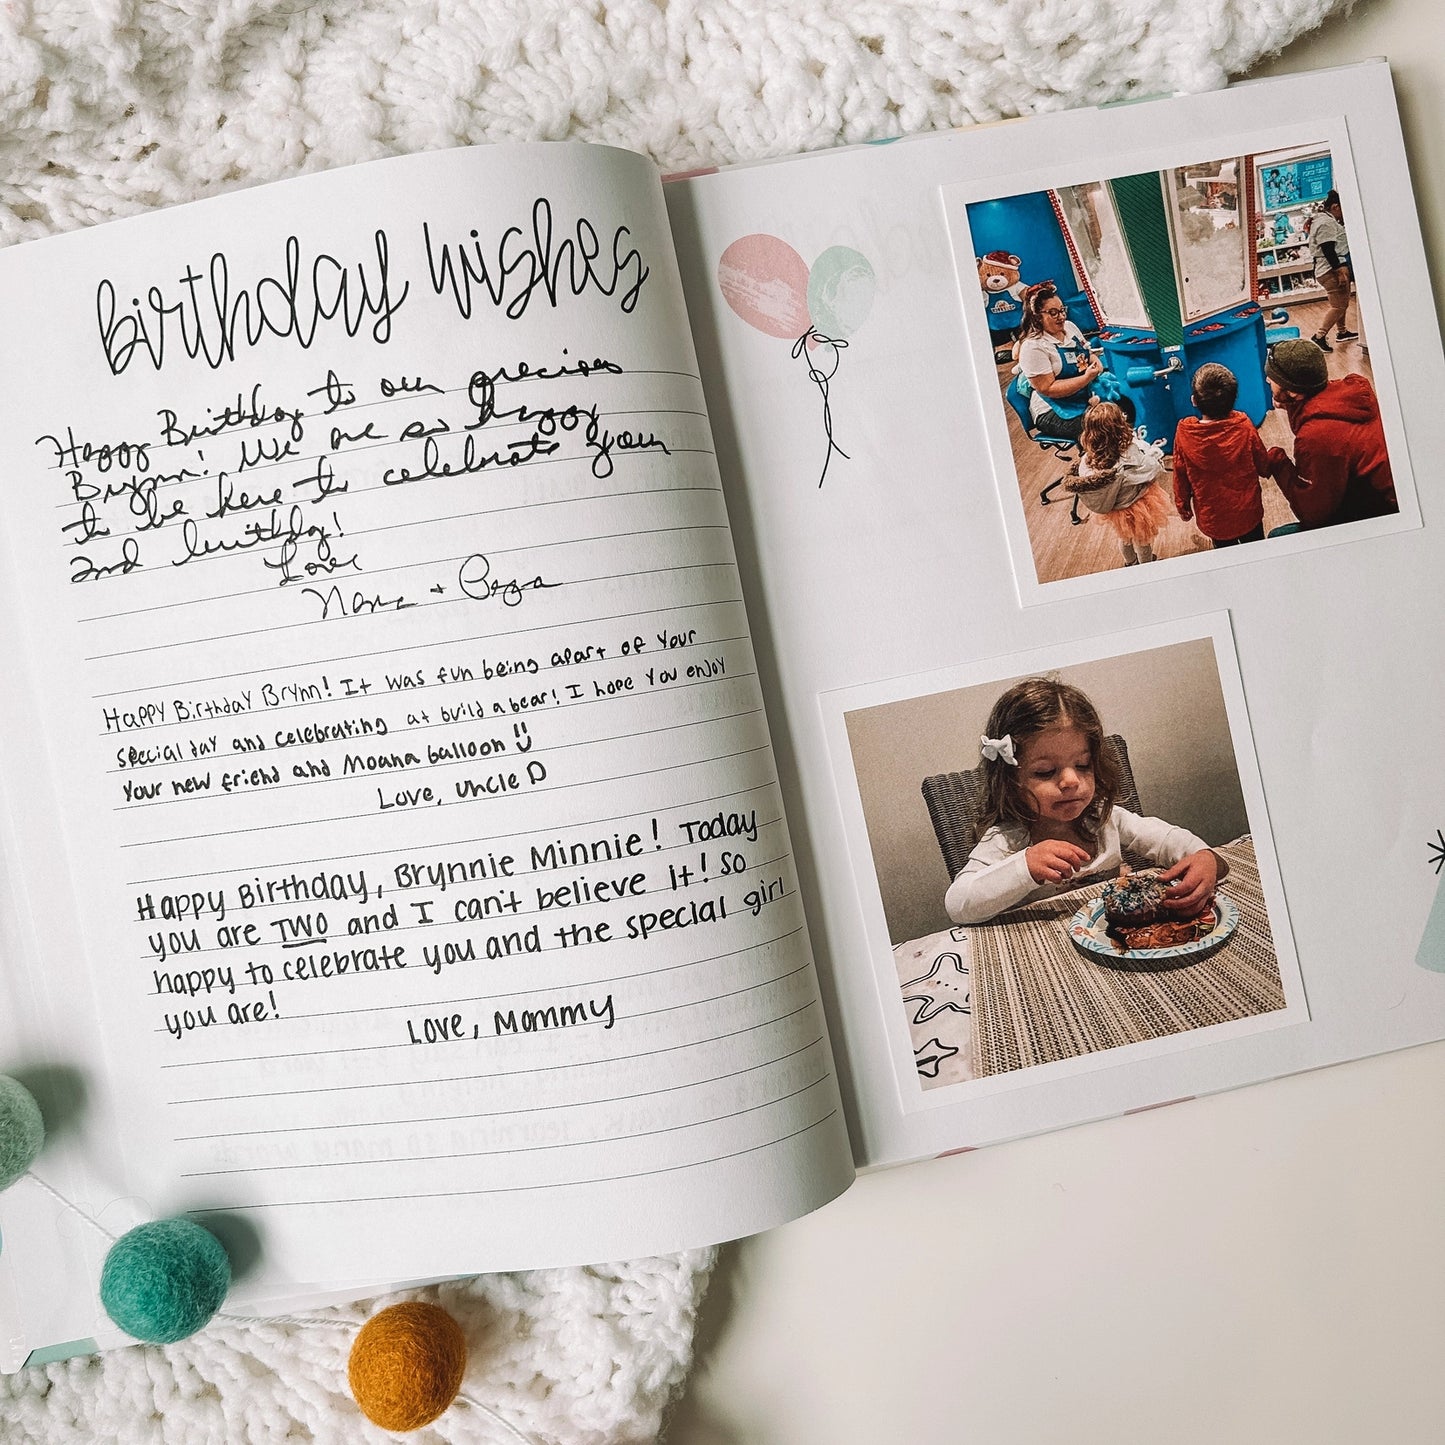 birthday wishes
Happy Birthday to our precious
Brynn! We are so happy
to be here to celebrate your
2nd birthday!
Love
Nana + Papa
Happy Birthday Brynn! It was fun being apart of your
special day and celebrating at build a bear! I hope you enjoy
your new friend and Moana balloon
Love, uncle D
Happy Birthday, Brynnie Minnie! Today
you are TWO and I can't believe it! So
happy to celebrate you and the special girl
you are!
Love, Mommy